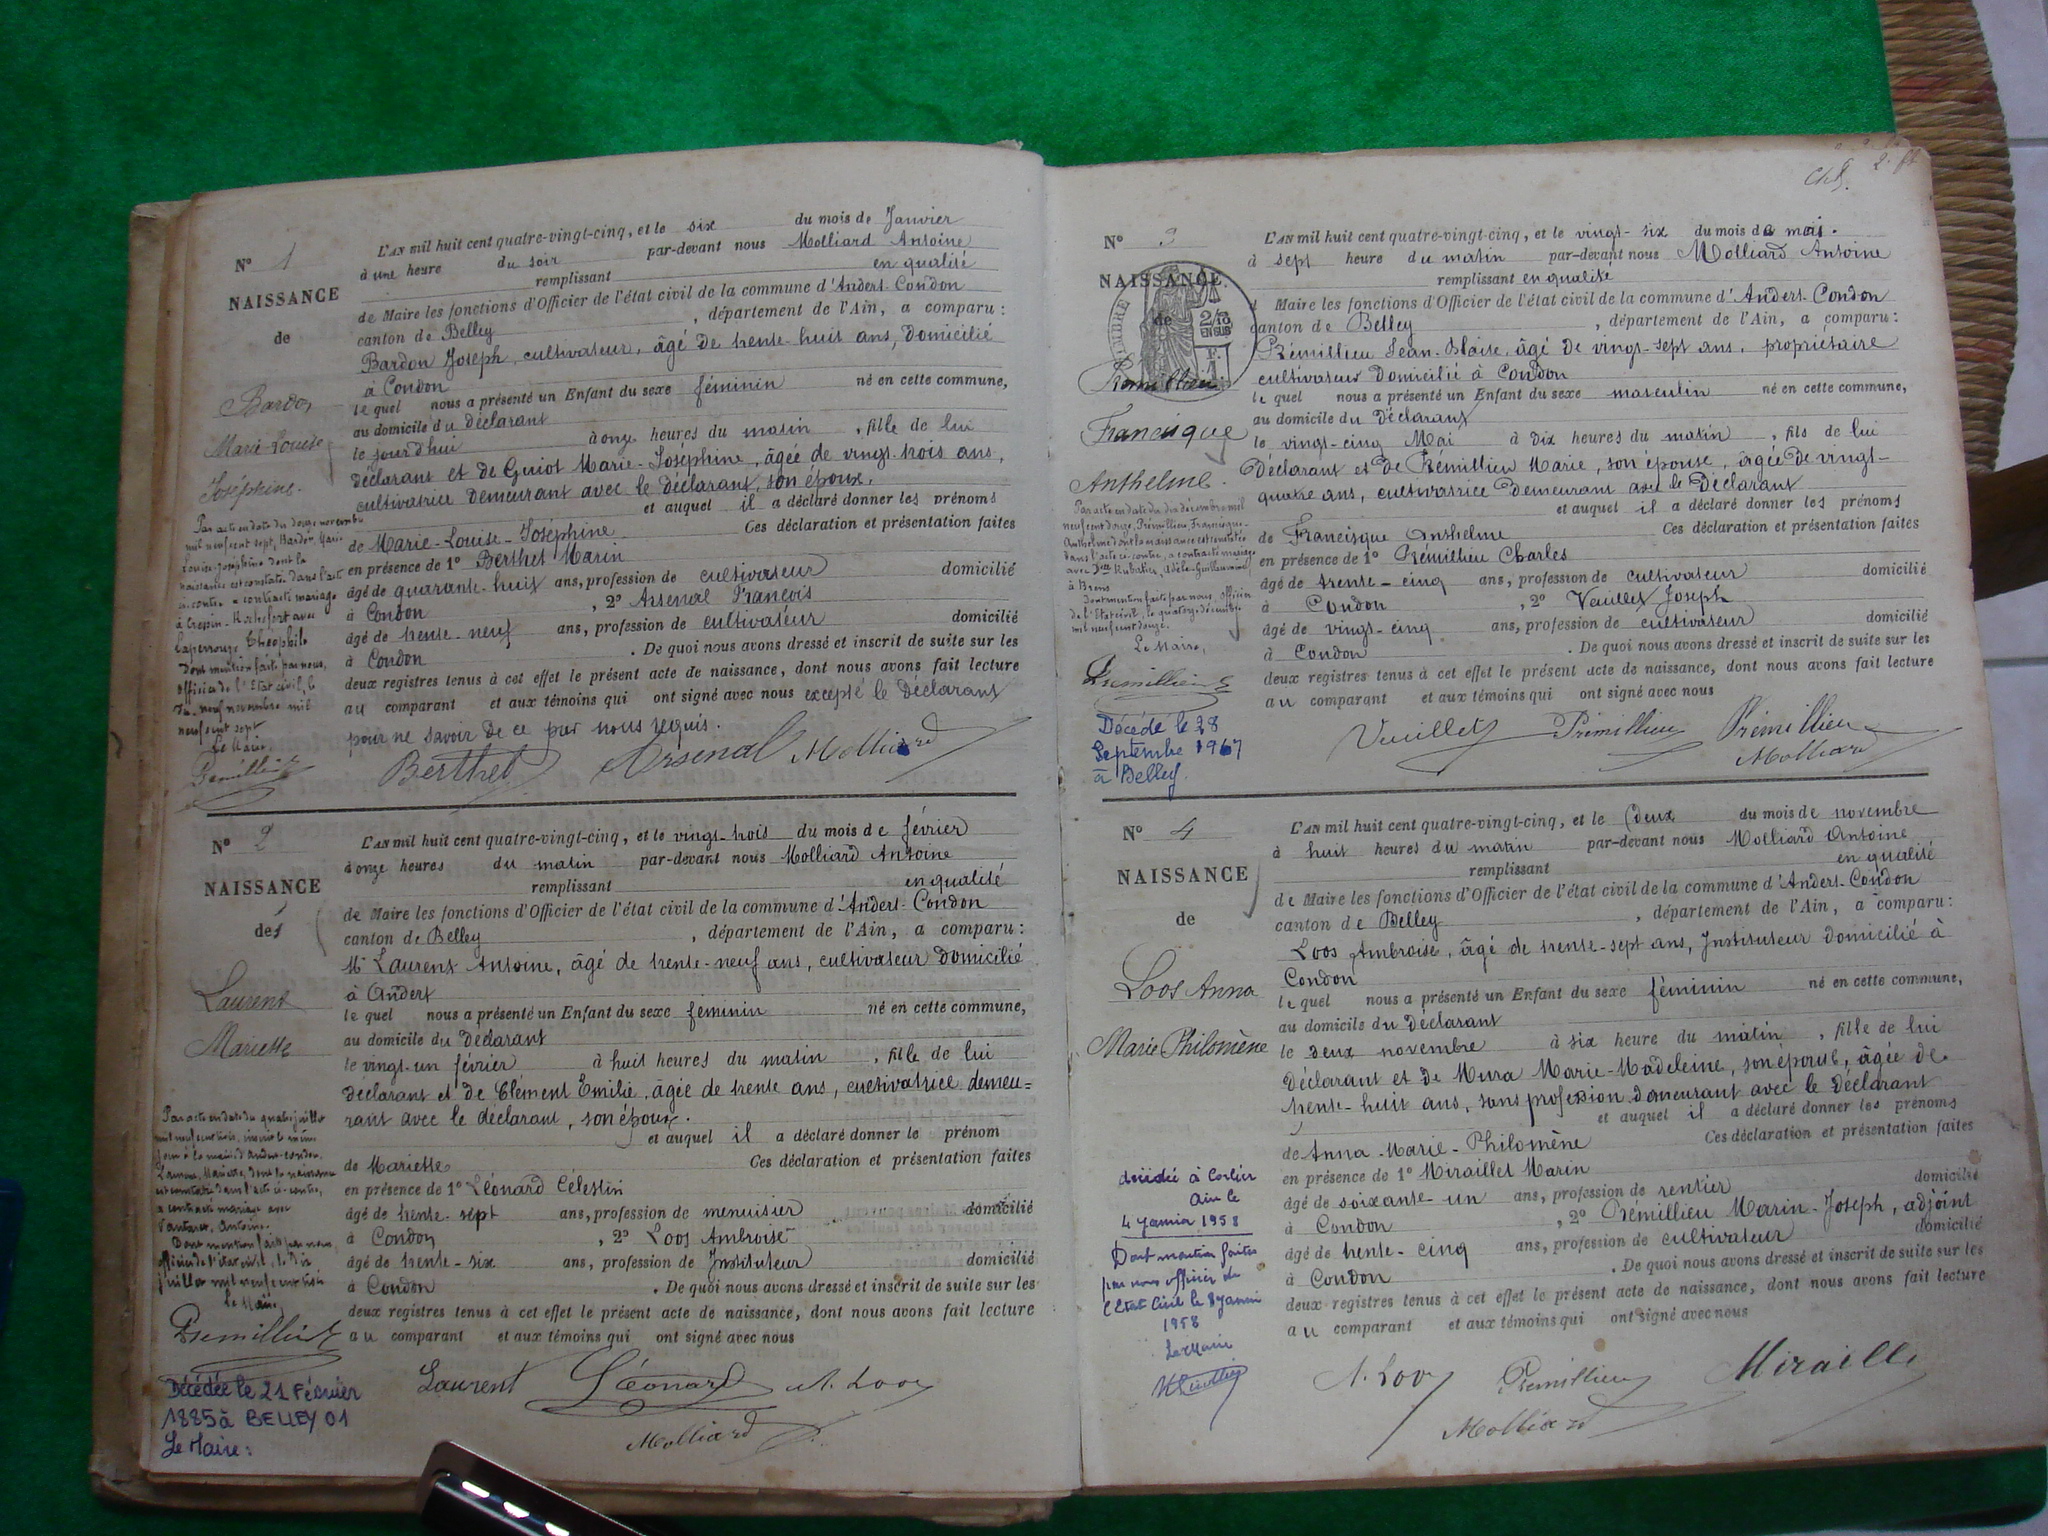 N° 1
NAISSANCE
de
Bardon
Marie-Louise
Joséphine.
L'AN mil huit cent quatre-vingt-cinq, et le six du mois de Janvier
à une heure du soir par-devant nous Molliard Antoine
remplissant en qualité
de Maire les fonctions d'Officier de l'état civil de la commune d'Andert-Condon
canton de Belley, département de l'Ain, a comparu:
Bardon Joseph, cultivateur, âgé de trente-huit ans, domicilié
à Condon
le quel nous a présenté un Enfant du sexe féminin né en cette commune,
au domicile du déclarant
le jourd'hui à onze heures du matin, fille de lui
déclarant et de Guiot Marie-Joséphine, âgée de vingt-trois ans,
cultivatrice demeurant avec le déclarant, son époux.
et auquel il a déclaré donner les prénoms
de Marie-Louise-Joséphine Ces déclaration et présentation faites
en présence de 1° Berthet Marin
âgé de quarante-huit ans, profession de cultivateur domicilié
à Condon, 2° Arsenal François
âgé de trente-neuf ans, profession de cultivateur domicilié
à Condon. De quoi nous avons dressé et inscrit de suite sur les
deux registres tenus à cet effet le présent acte de naissance, dont nous avons fait lecture
au comparant et aux témoins qui ont signé avec nous excepté le déclarant
pour ne savoir de ce par nous requis.
Berthet Arsenal Molliard
Par acte en date du douze novembre
mil neuf cent sept, Bardon, Marie
Louise-Joséphine dont la
naissance est constatée dans l'acte
ci-contre a contracté mariage
à Cressin-Rochefort avec
Laperrouze Théophile
Dont mention faite par nous,
officier de l'Etat civil, le
dix-neuf novembre mil
neuf cent sept
Le Maire,
Prémillieu
N° 2
NAISSANCE
de
Laurent
Mariette
L'AN mil huit cent quatre-vingt-cinq, et le vingt-trois du mois de février
à onze heures du matin par-devant nous Molliard Antoine
remplissant en qualité
de Maire les fonctions d'Officier de l'état civil de la commune d'Andert-Condon
canton de Belley, département de l'Ain, a comparu:
Mr Laurent Antoine, âgé de trente-neuf ans, cultivateur domicilié
à Andert
le quel nous a présenté un Enfant du sexe féminin né en cette commune,
au domicile du déclarant
le vingt-un février à huit heures du matin, fille de lui
déclarant et de Clément Emilie, âgée de trente ans, cultivatrice demeu=
rant avec le déclarant, son époux.
et auquel il a déclaré donner le prénom
de Mariette Ces déclaration et présentation faites
en présence de 1° Léonard Célestin
âgé de trente-sept ans, profession de menuisier domicilié
à Condon, 2° Loos Ambroise
âgé de trente-six ans, profession de Instituteur domicilié
à Condon. De quoi nous avons dressé et inscrit de suite sur les
deux registres tenus à cet effet le présent acte de naissance, dont nous avons fait lecture
au comparant et aux témoins qui ont signé avec nous
Laurent Léonard A. Loos
Molliard
Par acte en date du quatre juillet
mil neuf cent
jour à la mairie d'Andert-Condon,
Laurent, Mariette, dont la naissance
est constatée dans l'acte ci-contre,
a contracté mariage avec
Antoine.
Dont mention faite par nous
officier de l'état civil, le dix
juillet mil neuf cent
Le Maire,
Prémillieu
Décédée le 21 Février
1885 à BELLEY 01
Le Maire:
N° 3
NAISSANCE
de
Prémillieu
Francisque
Anthelme.
L'AN mil huit cent quatre-vingt-cinq, et le vingt-six du mois de mai.
à sept heure du matin par-devant nous Molliard Antoine
remplissant en qualité
d Maire les fonctions d'Officier de l'état civil de la commune d'Andert-Condon
canton de Belley, département de l'Ain, a comparu:
Prémillieu Jean-Blaise, âgé de vingt-sept ans, propriétaire
cultivateur domicilié à Condon
le quel nous a présenté un Enfant du sexe masculin né en cette commune,
au domicile du déclarant
le vingt-cinq Mai à dix heures du matin, fils de lui
déclarant et de Prémillieu Marie, son épouse, âgée de vingt-
quatre ans, cultivatrice demeurant avec le déclarant
et auquel il a déclaré donner les prénoms
de Francisque Anthelme Ces déclaration et présentation faites
en présence de 1° Prémillieu Charles
âgé de trente-cinq ans, profession de cultivateur domicilié
à Condon, 2° Veuillet Joseph
âgé de vingt-cinq ans, profession de cultivateur domicilié
à Condon. De quoi nous avons dressé et inscrit de suite sur les
deux registres tenus à cet effet le présent acte de naissance, dont nous avons fait lecture
au comparant et aux témoins qui ont signé avec nous
Vuillet Prémillieu Prémillieu
Molliard
Par acte en date du dix décembre mil
neuf cent douze, Prémillieu, Francisque-
Anthelme dont la naissance est constatée
dans l'acte ci-contre, a contracté mariage
avec Rubatier, Adèle-Guillaumine
à Brens
dont mention faite par nous, officier
de l'Etat civil, le quatorze décembre
mil neuf cent douze.
Le Maire,
Prémillieu
Décédé le 28
Septembre 1967
à Belley.
N° 4
NAISSANCE
de
Loos Anna
Marie Philomène
L'AN mil huit cent quatre-vingt-cinq, et le deux du mois de novembre
à huit heures du matin par-devant nous Molliard Antoine
remplissant en qualité
de Maire les fonctions d'Officier de l'état civil de la commune d'Andert-Condon
canton de Belley, département de l'Ain, a comparu:
Loos Ambroise, âgé de trente-sept ans, Instituteur domicilié à
Condon
le quel nous a présenté un Enfant du sexe féminin né en cette commune,
au domicile du déclarant
le deux novembre à six heure du matin, fille de lui
déclarant et de Mura Marie-Madeleine, son épouse, âgée de
trente-huit ans, sans profession demeurant avec le déclarant
et auquel il a déclaré donner les prénoms
de Anna-Marie-Philomène Ces déclaration et présentation faites
en présence de 1° Miraillet Marin
âgé de soixante-un ans, profession de rentier domicilié
à Condon, 2° Prémillieu Marin-Joseph, adjoint
âgé de trente-cinq ans, profession de cultivateur domicilié
à Condon. De quoi nous avons dressé et inscrit de suite sur les
deux registres tenus à cet effet le présent acte de naissance, dont nous avons fait lecture
au comparant et aux témoins qui ont signé avec nous
A. Loos Prémillieu Miraillet
Molliard
décédée à Corlier
Ain le
4 Janvier 1958
Dont mention faite
par nous officier de
l'Etat Civil le 8 Janvier
1958
Le Maire